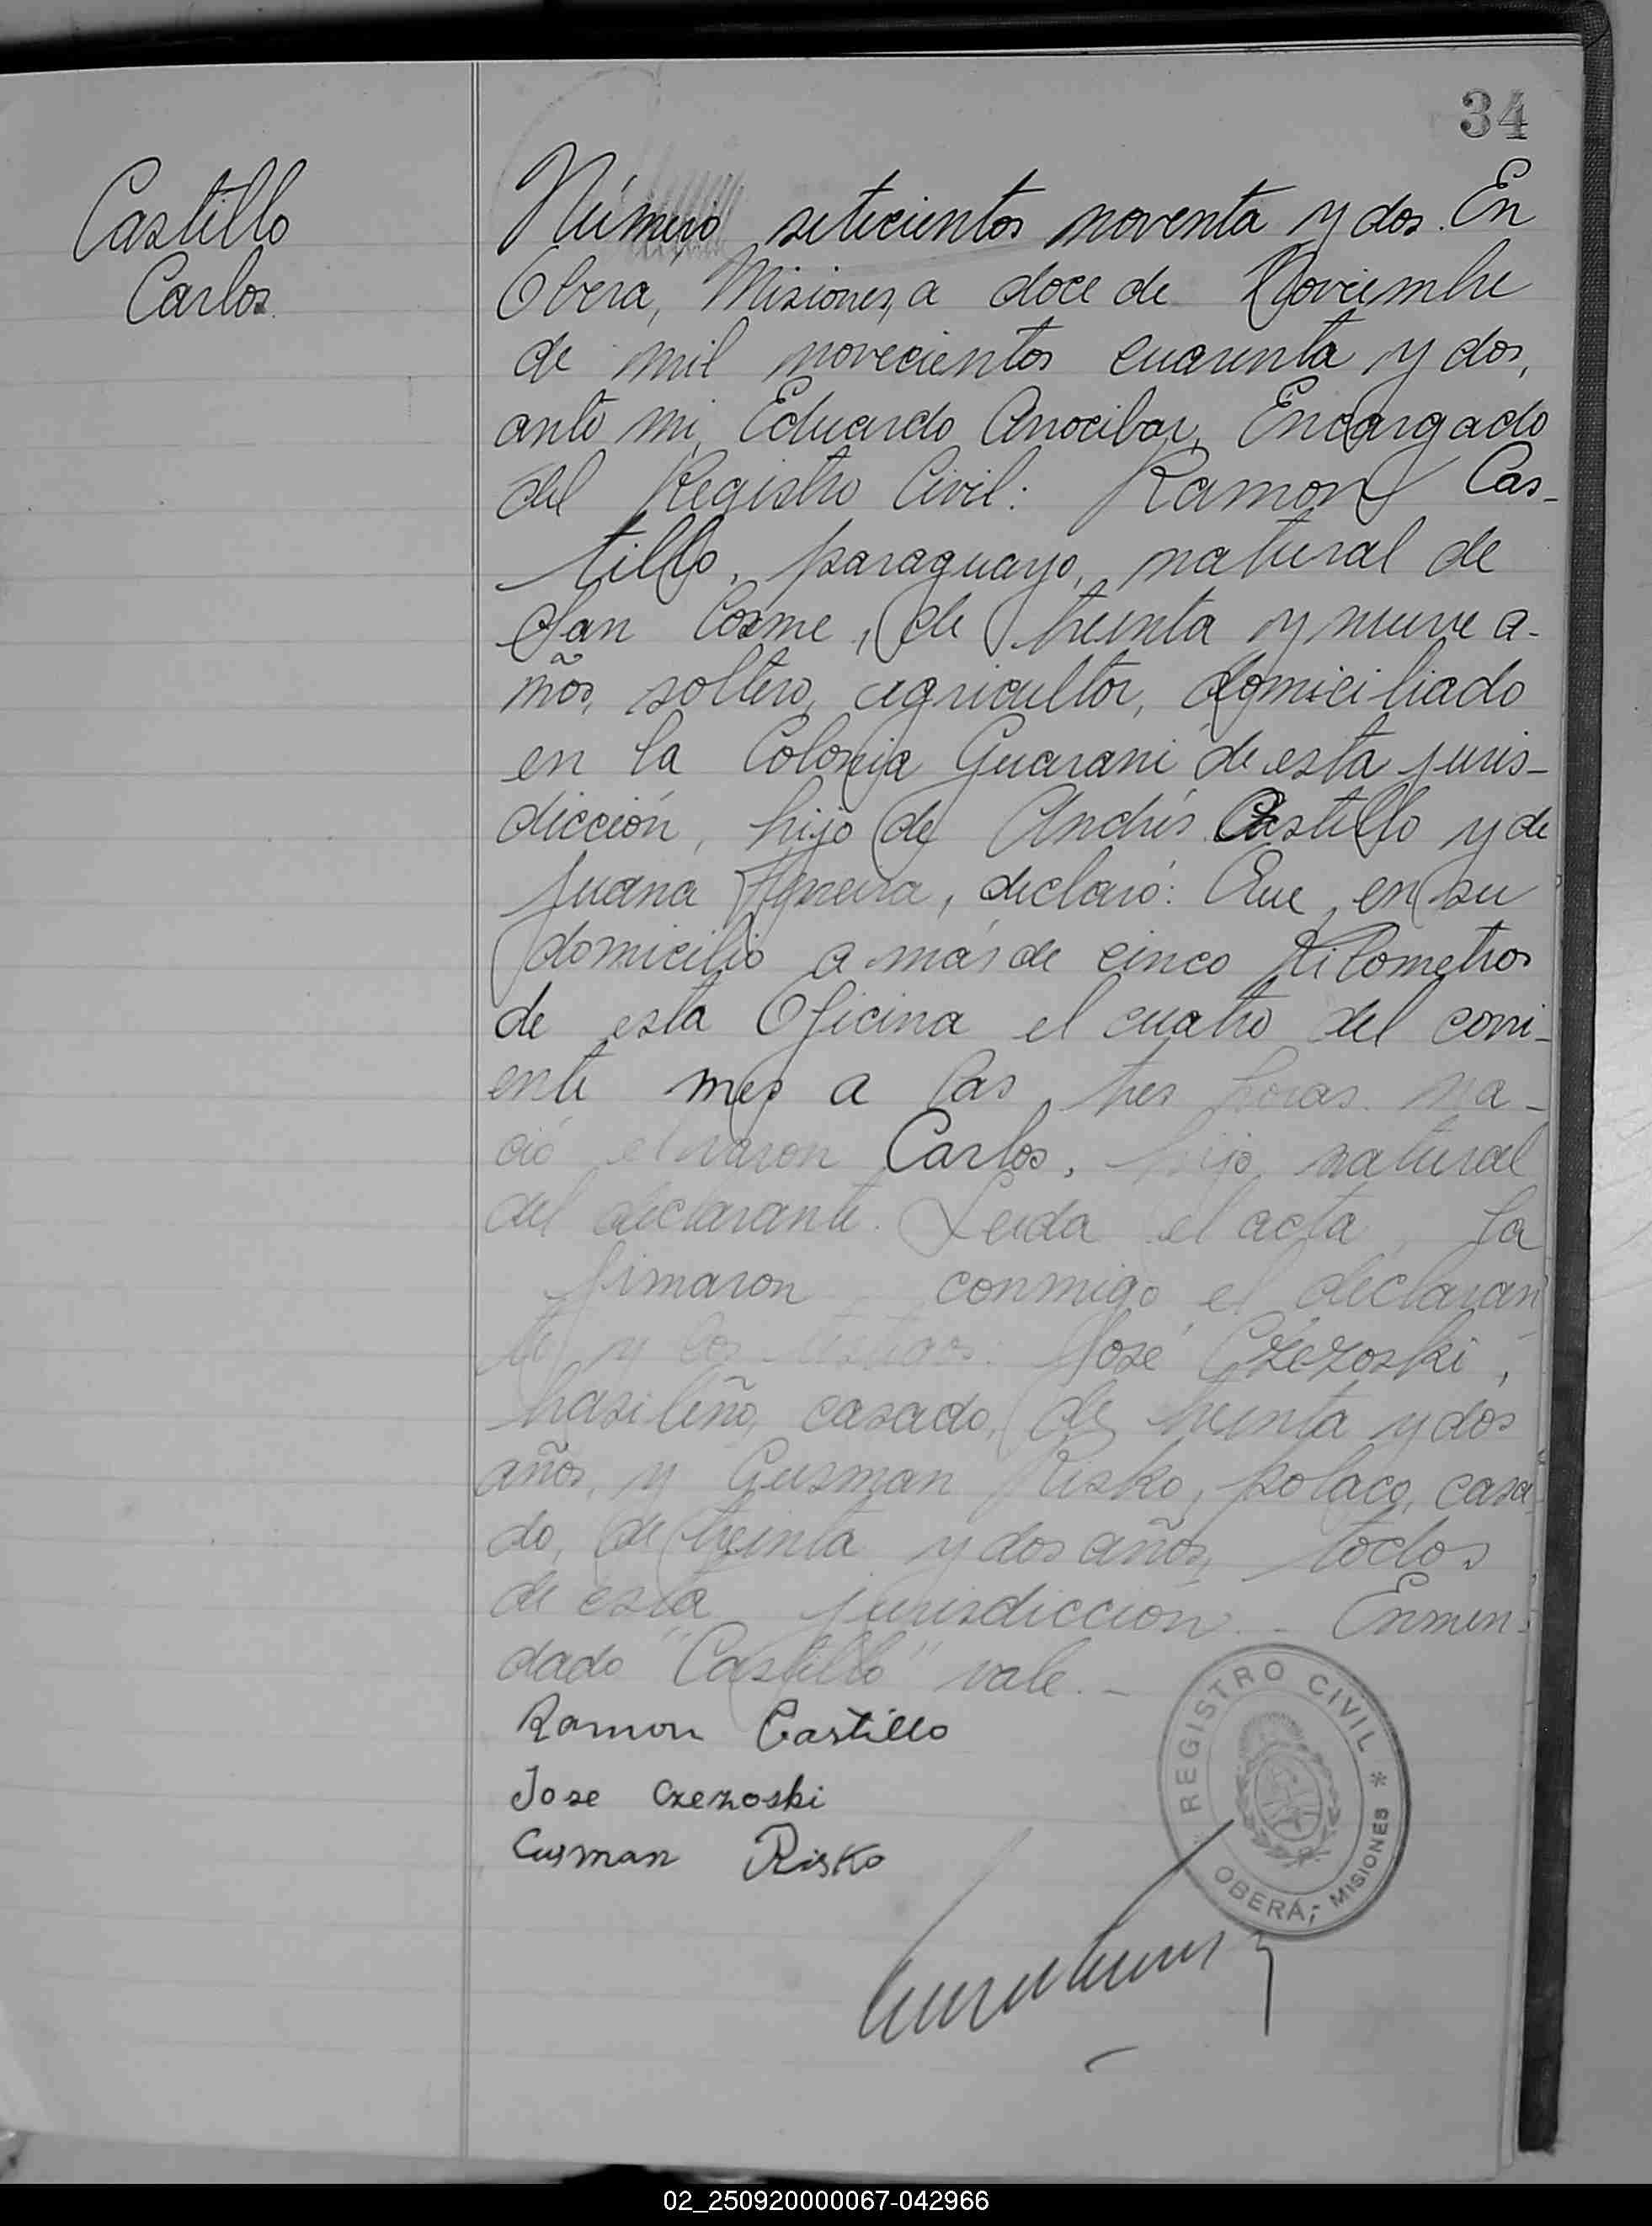 34
Castillo
Carlos
Número setecientos noventa y dos. En
Obera, Misiones, a doce de Noviembre
de mil novecientos cuarenta y dos,
ante mi, Eduardo Arrocibar, Encargado
del Registro Civil: Ramon Cas-
tillo, paraguayo, natural de
San Cosme, de treinta y nueve a-
ños, soltero, agricultor, domiciliado
en la Colonia Guarani de esta juris-
dicción, hijo de Andrés Castillo y de
Juana, declaró: Que en su
domicilio a más de cinco Kilometros
de esta Oficina el cuatro del corri-
ente mes a las tres horas na-
ció el varon Carlos, hijo natural
del declarante. Leida el acta, la
firmaron conmigo el declaran
te y los testigos: José Czezoski,
brasileño, casado, de treinta y dos
años, y Gusman Risko, polaco, casa
do, de treinta y dos años, todos
de esta jurisdiccion. - Enmen-
dado "Castillo" vale. -
Ramon Castillo
Jose Czezoski
Gusman Risko
REGISTRO CIVIL *
OBERÁ, - MISIONES
02_250920000067-042966